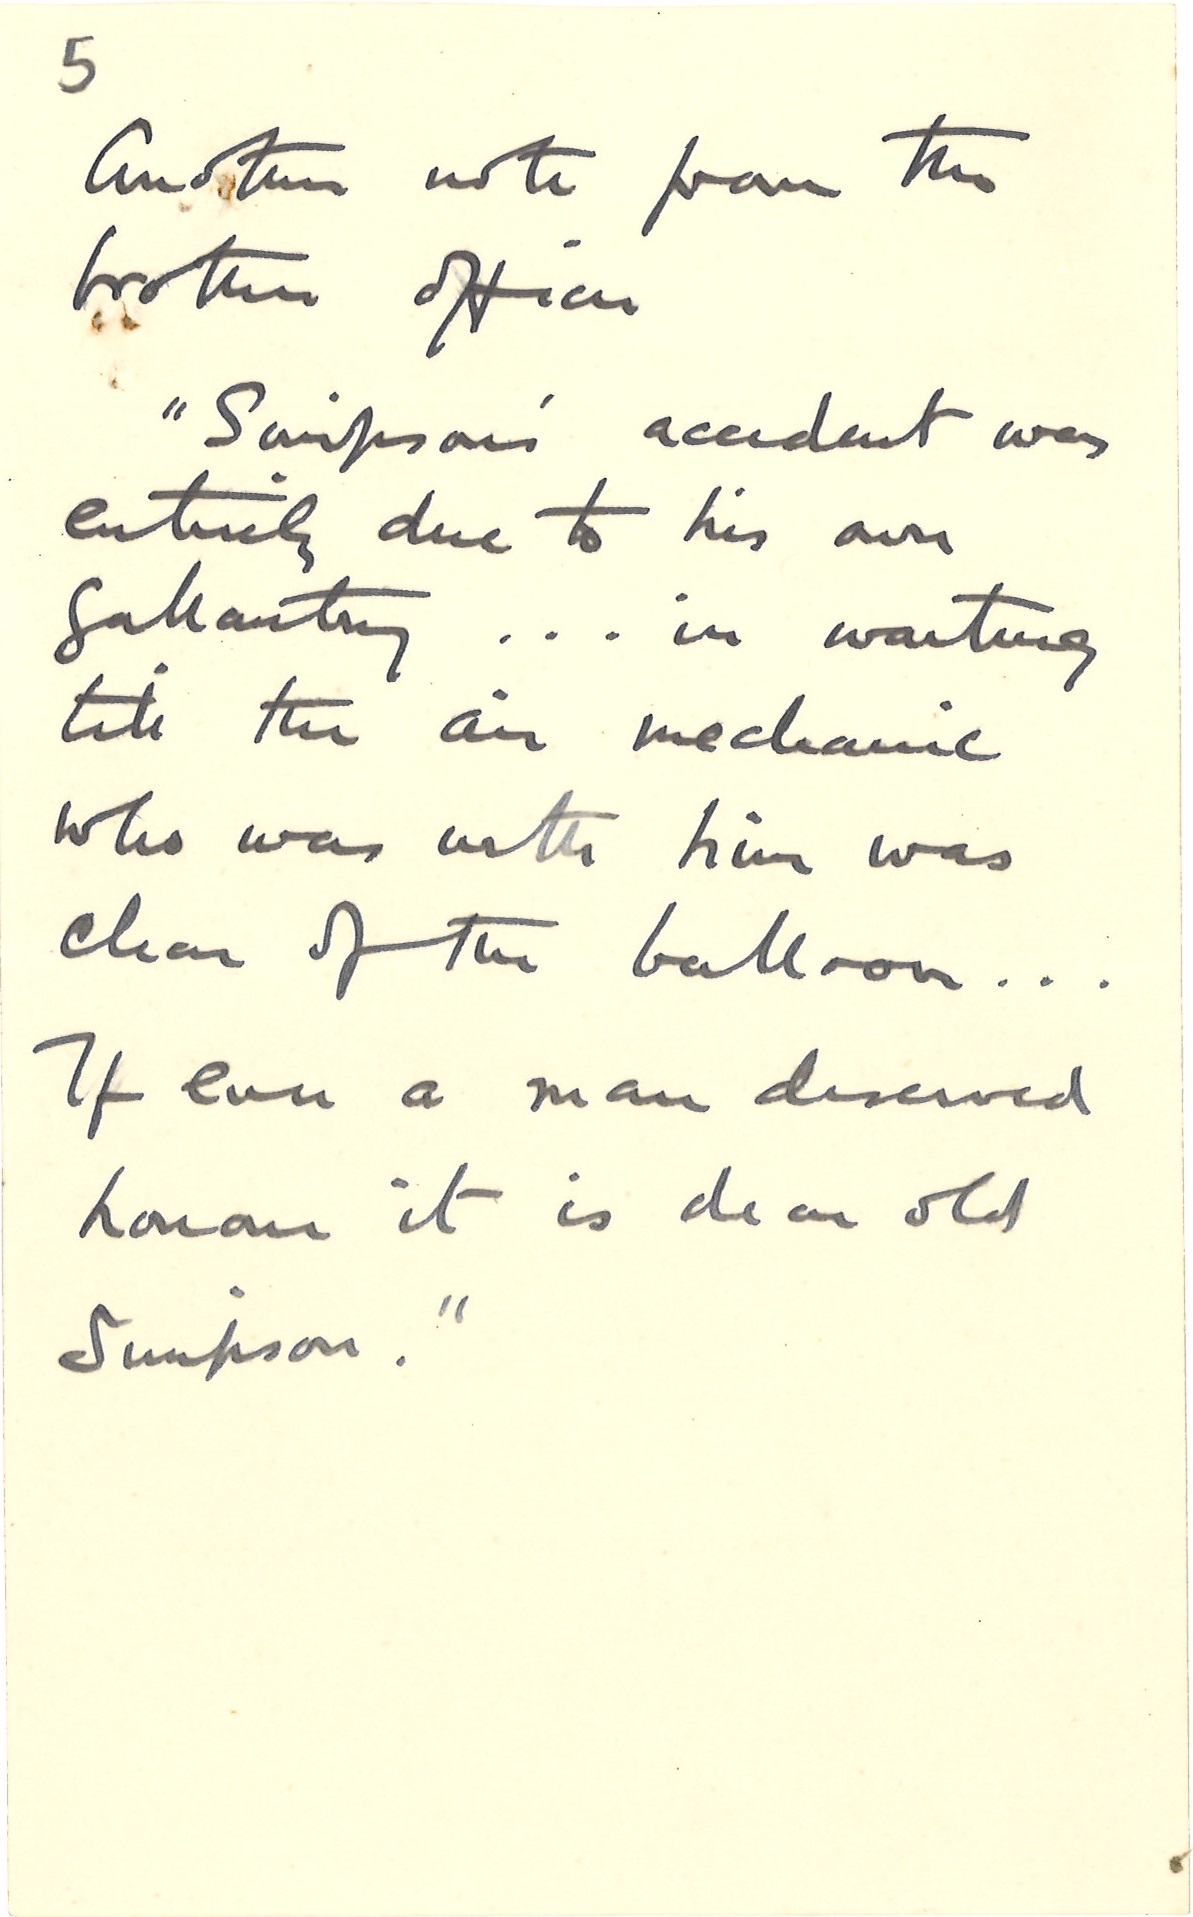 5
Another note from the
brother officer
"Simpson's accident was
entirely due to his own
gallantry ... in waiting
till the air mechanic
who was with him was
clear of the balloon...
If ever a man deserved
honour it is dear old
Simpson."